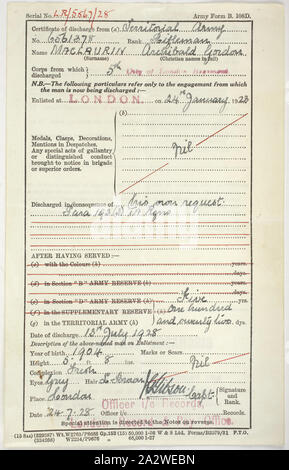 Serial No. LR/5567/28 Army Form B. 108D.
Certificate of discharge from (a) Territorial Army
No. 6561278 Rank Rifleman
Name MACLAURIN Archibald Gordon
(Surname) (Christian names in full)
Corps from which discharged 5th City of London Regiment
N.B.—The following particulars refer only to the engagement from which the man is now being discharged:—
Enlisted at LONDON. on 24th January 1923
(b)
Medals, Clasps, Decorations, Mentions in Despatches. Any special acts of gallantry or distinguished conduct brought to notice in brigade or superior orders.
Nil
Discharged in consequence of his own request.
Para 193
AFTER HAVING SERVED:—
(c) with the Colours (h) years days.
(d) in Section "B" ARMY RESERVE (h) years days.
(e) in Section "D" ARMY RESERVE (h) Five years
(f) in the SUPPLEMENTARY RESERVE (h) one hundred
(g) in the TERRITORIAL ARMY (h) and twenty two days.
Date of discharge 13th July 1928
Description of the above-named man on Enlistment:—
Year of birth 1904 Marks or Scars
Height 5 ft. 8 ins. Nil
Complexion Fresh
Eyes Grey Hair Lt. Brown
Place London Capt. Signature and Rank.
Officer i/c Records,
Date 24.7.28 Officer i/c Records.
Special attention is directed to the Notes on reverse.
alamy
Image ID: 2A2WEBN
www.alamy.com